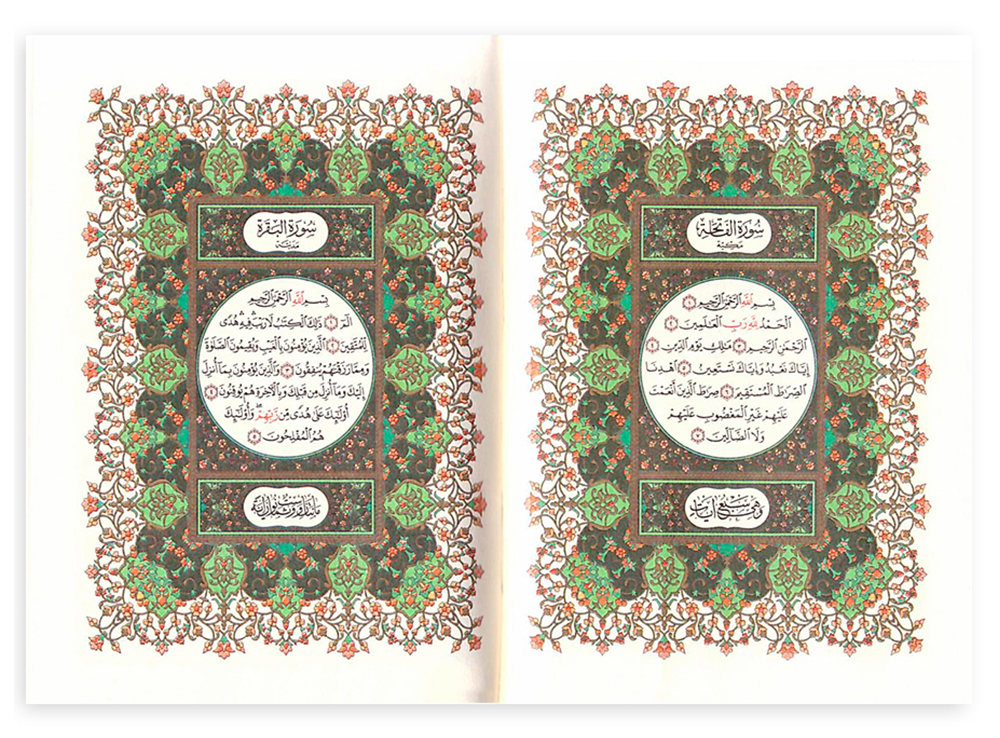 سُورَةُ الفَاتِحَة
مَكِّيَّة
بِسْمِ ٱللَّهِ ٱلرَّحْمَٰنِ ٱلرَّحِيمِ ١
ٱلْحَمْدُ لِلَّهِ رَبِّ ٱلْعَٰلَمِينَ ٢
ٱلرَّحْمَٰنِ ٱلرَّحِيمِ ٣ مَٰلِكِ يَوْمِ ٱلدِّينِ ٤
إِيَّاكَ نَعْبُدُ وَإِيَّاكَ نَسْتَعِينُ ٥ ٱهْدِنَا
ٱلصِّرَٰطَ ٱلْمُسْتَقِيمَ ٦ صِرَٰطَ ٱلَّذِينَ أَنْعَمْتَ
عَلَيْهِمْ غَيْرِ ٱلْمَغْضُوبِ عَلَيْهِمْ
وَلَا ٱلضَّآلِّينَ ٧
وَهِيَ سَبْعُ آيَاتٍ
سُورَةُ البَقَرَة
مَدَنِيَّة
بِسْمِ ٱللَّهِ ٱلرَّحْمَٰنِ ٱلرَّحِيمِ
الٓمٓ ١ ذَٰلِكَ ٱلْكِتَٰبُ لَا رَيْبَ ۛ فِيهِ ۛ هُدًى
لِّلْمُتَّقِينَ ٢ ٱلَّذِينَ يُؤْمِنُونَ بِٱلْغَيْبِ وَيُقِيمُونَ ٱلصَّلَوٰةَ
وَمِمَّا رَزَقْنَٰهُمْ يُنفِقُونَ ٣ وَٱلَّذِينَ يُؤْمِنُونَ بِمَآ أُنزِلَ
إِلَيْكَ وَمَآ أُنزِلَ مِن قَبْلِكَ وَبِٱلْءَاخِرَةِ هُمْ يُوقِنُونَ ٤
أُو۟لَٰٓئِكَ عَلَىٰ هُدًى مِّن رَّبِّهِمْ ۖ وَأُو۟لَٰٓئِكَ
هُمُ ٱلْمُفْلِحُونَ ٥
مائتان وست وثمانون آية